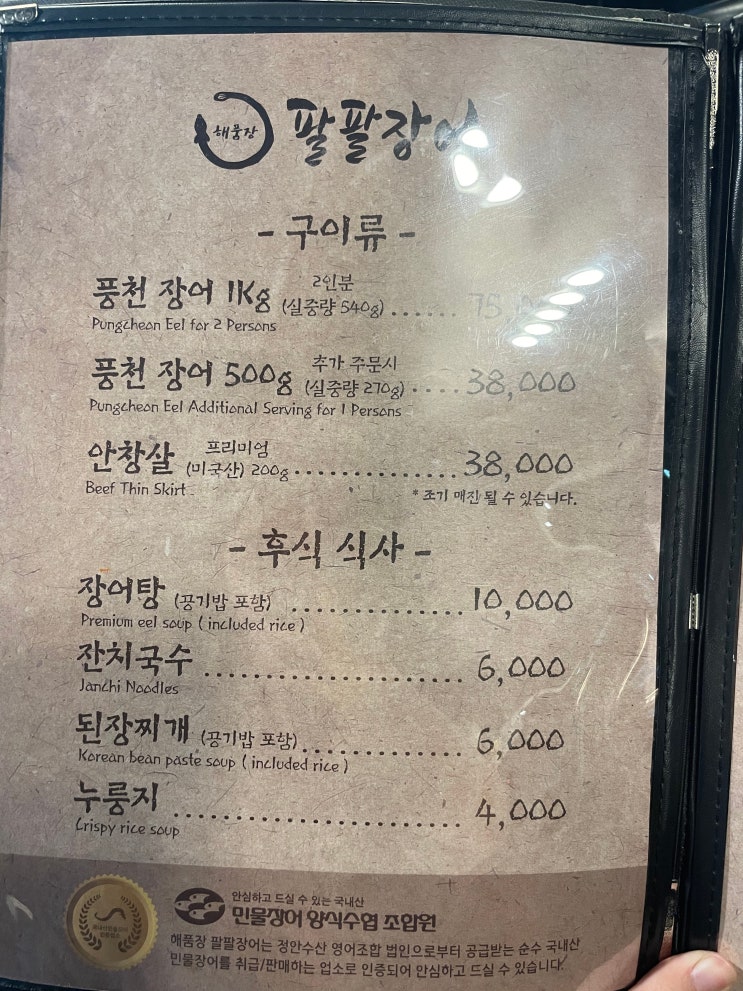 해품장 팔팔장어
- 구이류 -
풍천 장어 1Kg 2인분 (실중량 540g) ......
Pungcheon Eel for 2 Persons
풍천 장어 500g 추가 주문시 (실중량 270g) .... 38,000
Pungcheon Eel Additional Serving for 1 Persons
안창살 프리미엄 (미국산) 200g ................... 38,000
Beef Thin Skirt
* 조기 매진 될 수 있습니다.
- 후식 식사 -
장어탕 (공기밥 포함) ................. 10,000
Premium eel soup ( included rice )
잔치국수 .......................... 6,000
Janchi Noodles
된장찌개 (공기밥 포함) ................ 6,000
Korean bean paste soup ( included rice )
누룽지 ............................. 4,000
Crispy rice soup
안심하고 드실 수 있는 국내산
민물장어 양식수협 조합원
해품장 팔팔장어는 정안수산 영어조합 법인으로부터 공급받는 순수 국내산
민물장어를 취급/판매하는 업소로 인증되어 안심하고 드실 수 있습니다.